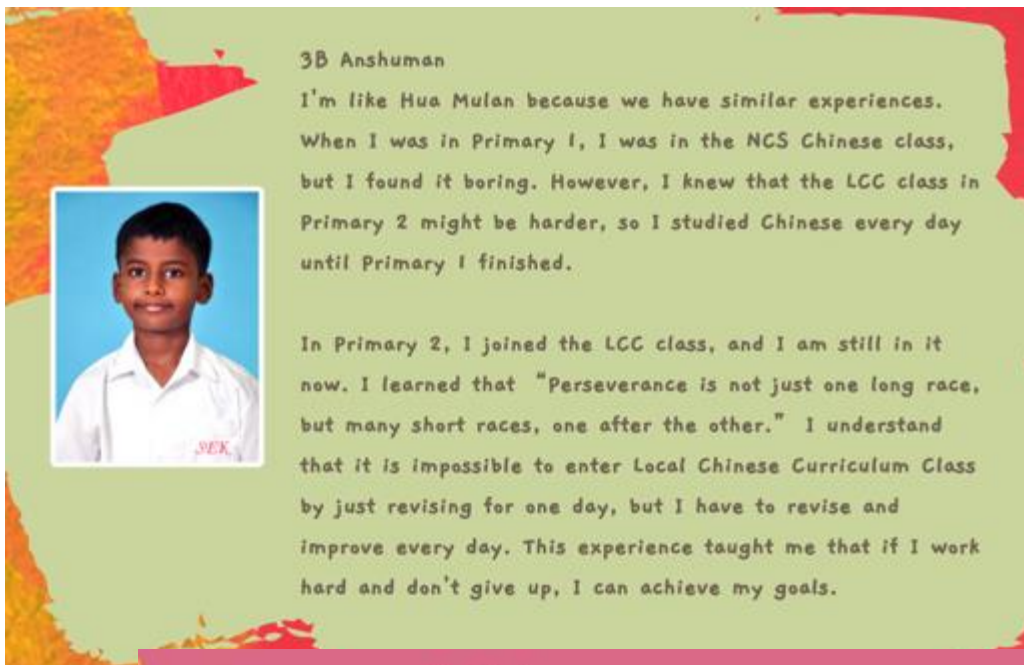 3B Anshuman
I'm like Hua Mulan because we have similar experiences.
When I was in Primary 1, I was in the NCS Chinese class,
but I found it boring. However, I knew that the LCC class in
Primary 2 might be harder, so I studied Chinese every day
until Primary 1 finished.
In Primary 2, I joined the LCC class, and I am still in it
now. I learned that "Perseverance is not just one long race,
but many short races, one after the other." I understand
that it is impossible to enter Local Chinese Curriculum Class
by just revising for one day, but I have to revise and
improve every day. This experience taught me that if I work
hard and don't give up, I can achieve my goals.